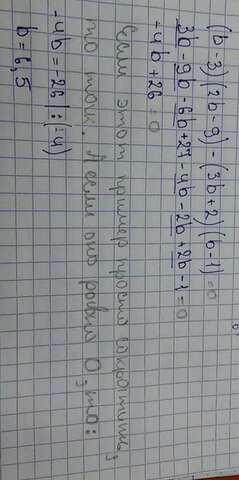 (b-3)(2b-9)-(3b+2)(b-1)=0
3b-9b-6b+27-4b-2b+2b-1=0
-4b+26=0
Если этот пример просто сократить,
то так. А если оно равно 0 это:
-4b=26|:(-4)
b=6,5